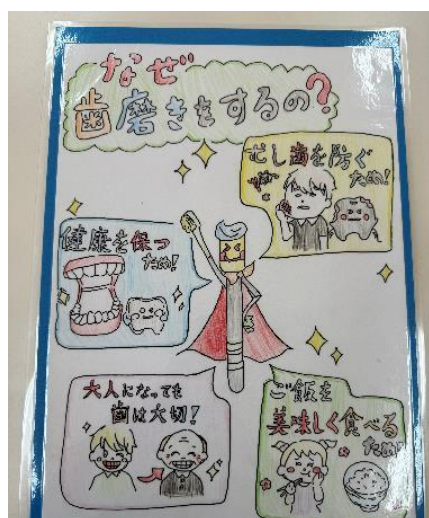 なぜ
歯磨きをするの?
むし歯を防ぐ
ため!
健康を保つ
ため!
大人になっても
歯は大切!
ご飯を
美味しく食べる
ため!